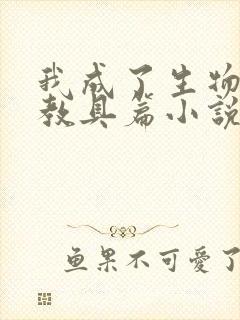 我成了生物
教具篇小說
鱼果不可愛了